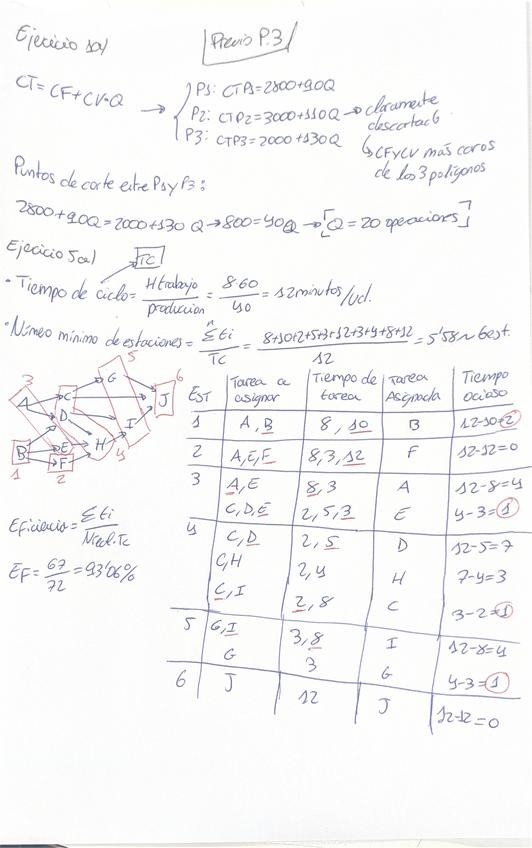 Ejercicio 1a)
Previo P.3
CT = CF + CV·Q → P1: CTP1 = 2800 + 90Q
P2: CTP2 = 3000 + 110Q → claramente descartado
P3: CTP3 = 2000 + 130Q ↳ CF y CV más caros de los 3 polígonos
Puntos de corte entre P1 y P3:
2800 + 90Q = 2000 + 130Q → 800 = 40Q → [Q = 20 operaciones]
Ejercicio 5a)
TC
· Tiempo de ciclo = H trabajo / producción = 8·60 / 40 = 12 minutos/ud.
· Número mínimo de estaciones = Σti / TC = 8+10+2+5+3+12+3+4+8+12 / 12 = 5'58 ~ 6 est.
3 5 6
A B C D E F G H I J
1 2 4
EST Tarea a asignar Tiempo de tarea Tarea Asignada Tiempo ocioso
1 A, B 8, 10 B 12-10=2
2 A, E, F 8, 3, 12 F 12-12=0
3 A, E 8, 3 A 12-8=4
C, D, E 2, 5, 3 E 4-3=1
4 C, D 2, 5 D 12-5=7
C, H 2, 4 H 7-4=3
C, I 2, 8 C 3-2=1
5 G, I 3, 8 I 12-8=4
G 3 G 4-3=1
6 J 12 J 12-12=0
Eficiencia = Σti / Nreal·Tc
EF = 67 / 72 = 93'06%